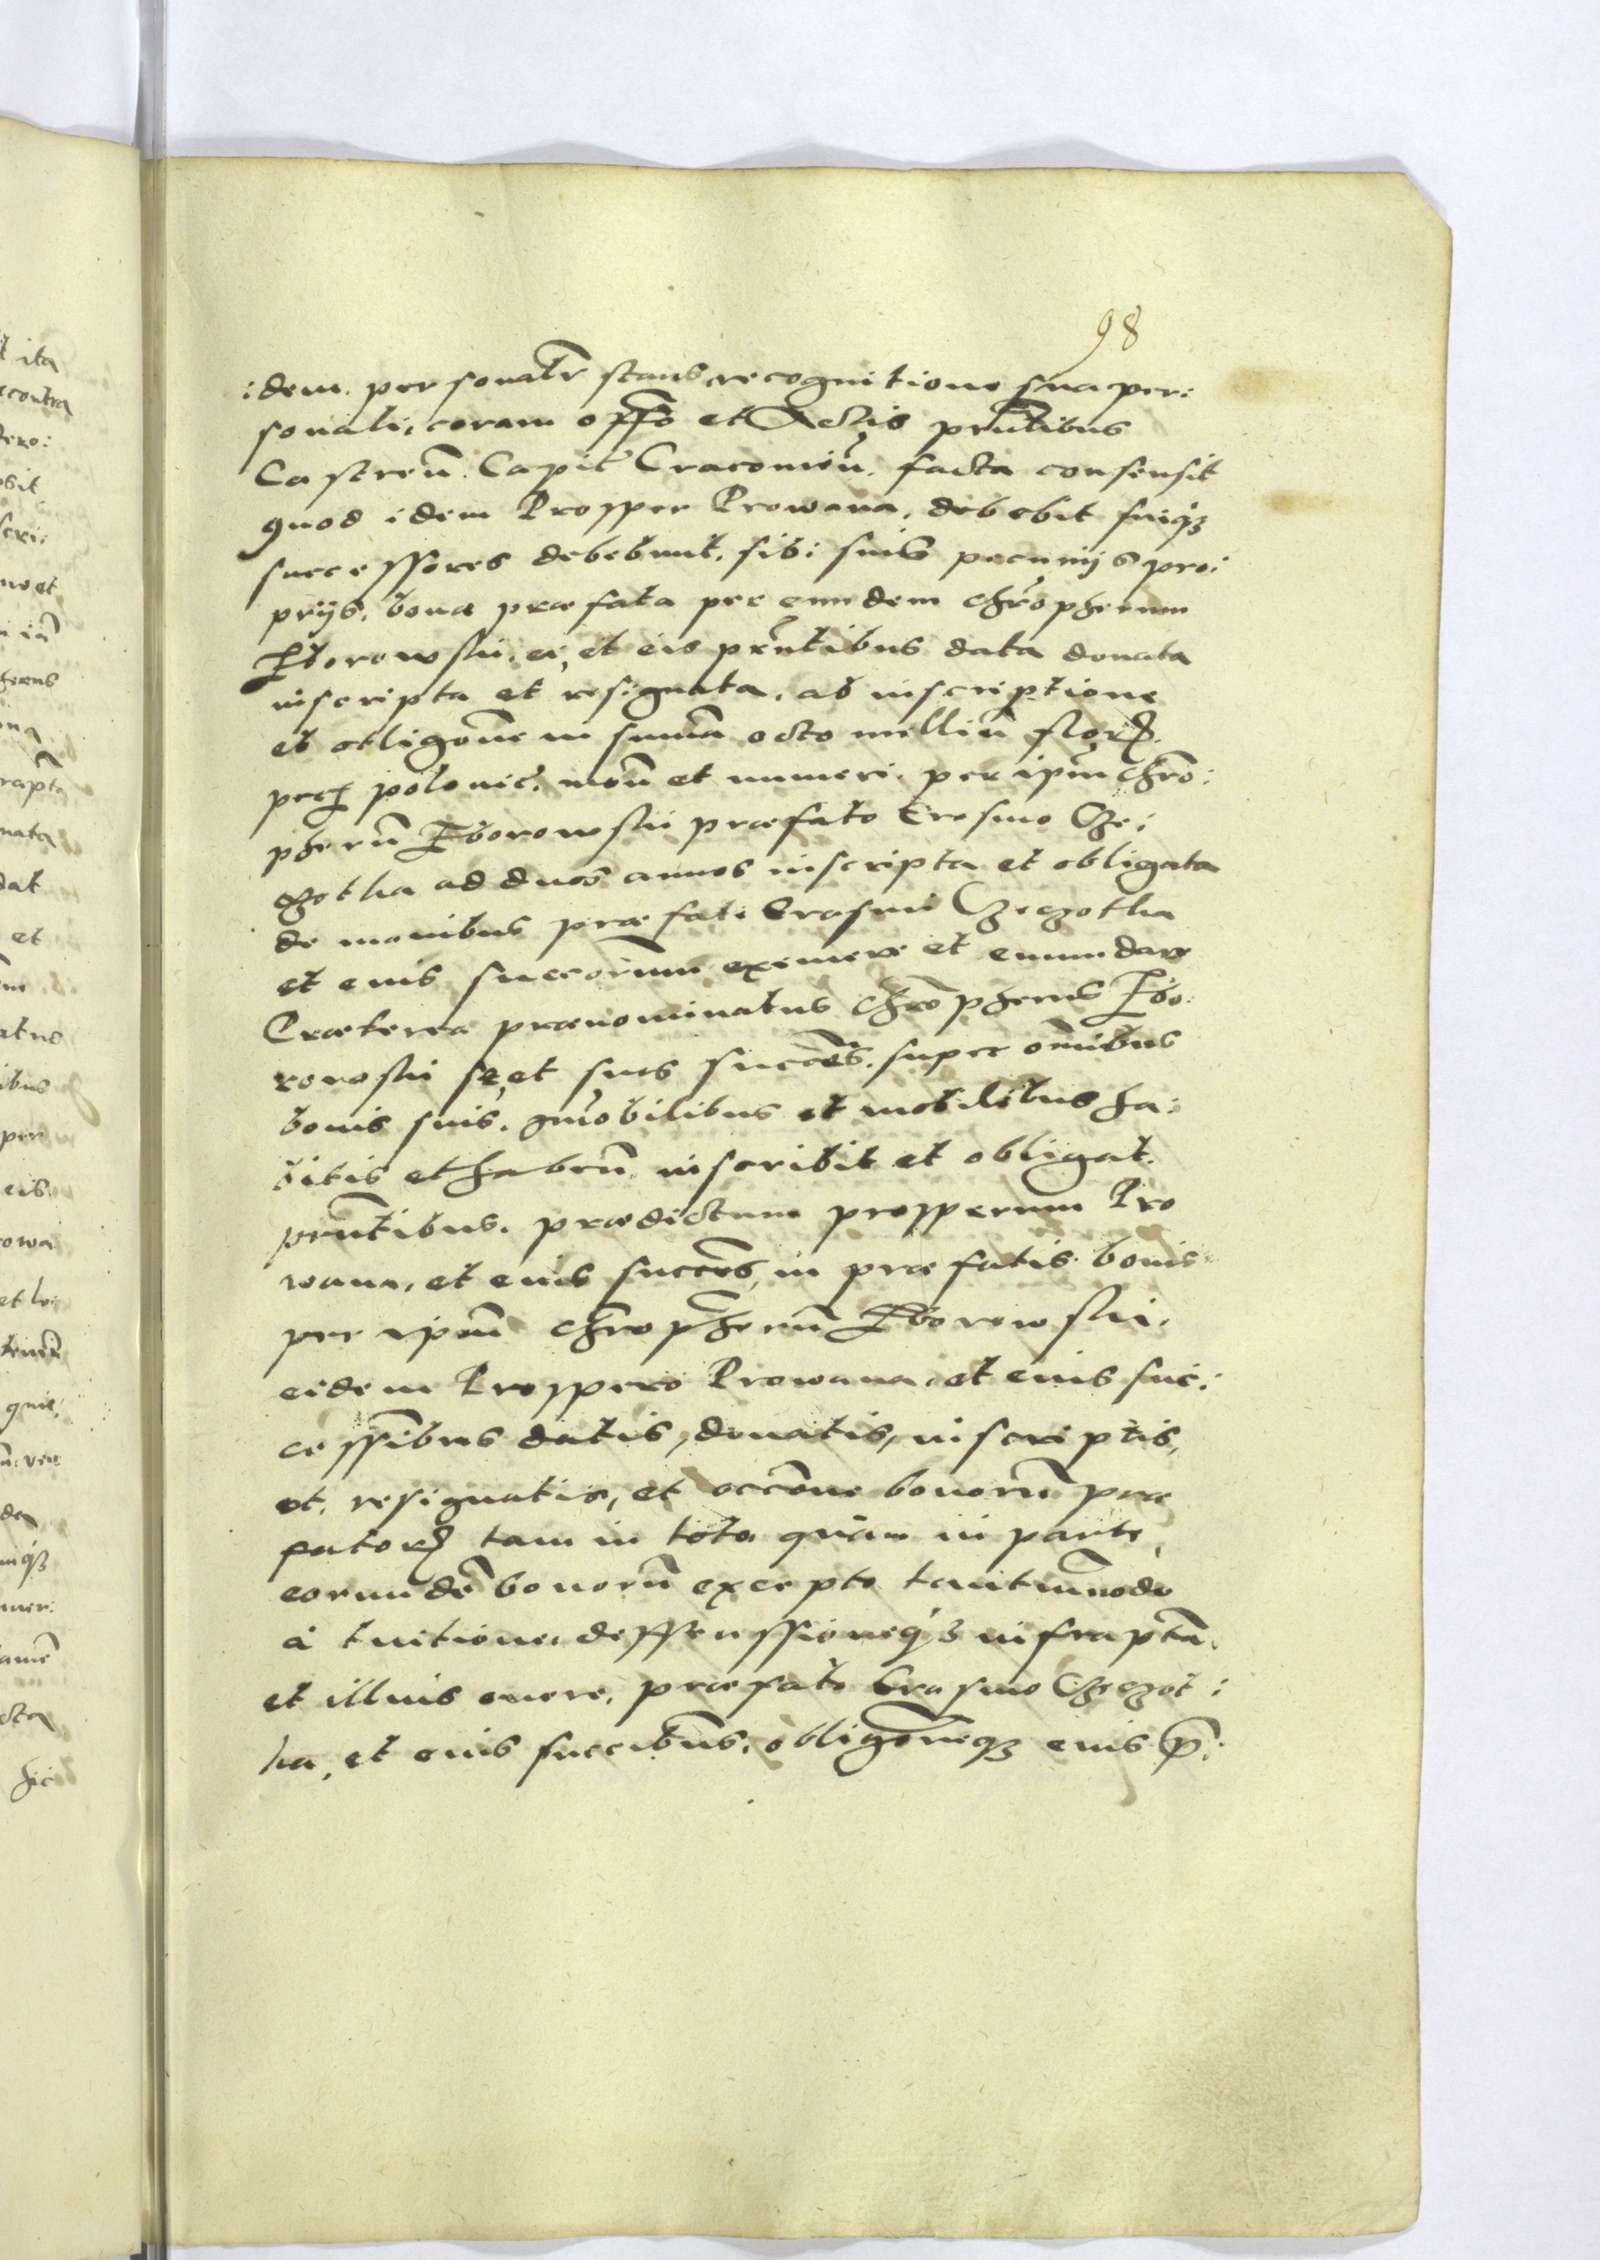 98
idem personalr̄ stans recognitione sua per:
sonali, coram offō et Actis pn̄tibus
Castren̄. Capit̄ Cracouien̄. facta consensit
quod idem Prosper Prowana, debebit suiqȝ
successores debebunt, sibi suis pecunijs pro:
prijs, bona præfata per eundem chr̄opherum
Zborowskii, ei, et eis pn̄tibus data donata
inscripta et resignata, ab inscriptione
et obligōne in sum̄a octo milliū flor.
pec polonic̄. mon̄ et numeri. per ipm̄ chr̄o:
pherū Zborowskii præfato Erasmo Cze:
czotha ad duos annos inscripta et obligata
de manibus præfati Erasmi Czeczotha
et eius succorum eximere et emundare
Præterea prænominatus chr̄opherus Zbo:
rowskii se, et suos succēs. super om̄ibus
bonis suis. im̄obilibus et mobilibus ha:
bitis et haben̄. inscribit et obligat.
pn̄tibus. prædictum prosperum Pro
wana, et eius succēs, in præfatis bonis
per ipm̄ chr̄opherum Zborowskii,
eidem Prospero Prowana, et eius suc:
cessibus datis, donatis, inscriptis,
et, resignatis, et occōne bonorū præ
fator tam in toto quàm in parte,
eorundē bonorū excepto tantūmodo
à tuitione, deffenssioneqȝ infraptā,
et illius onere, præfato Erasmo Czeczot:
ha, et eius succibus, obligōneqȝ eius p̄: